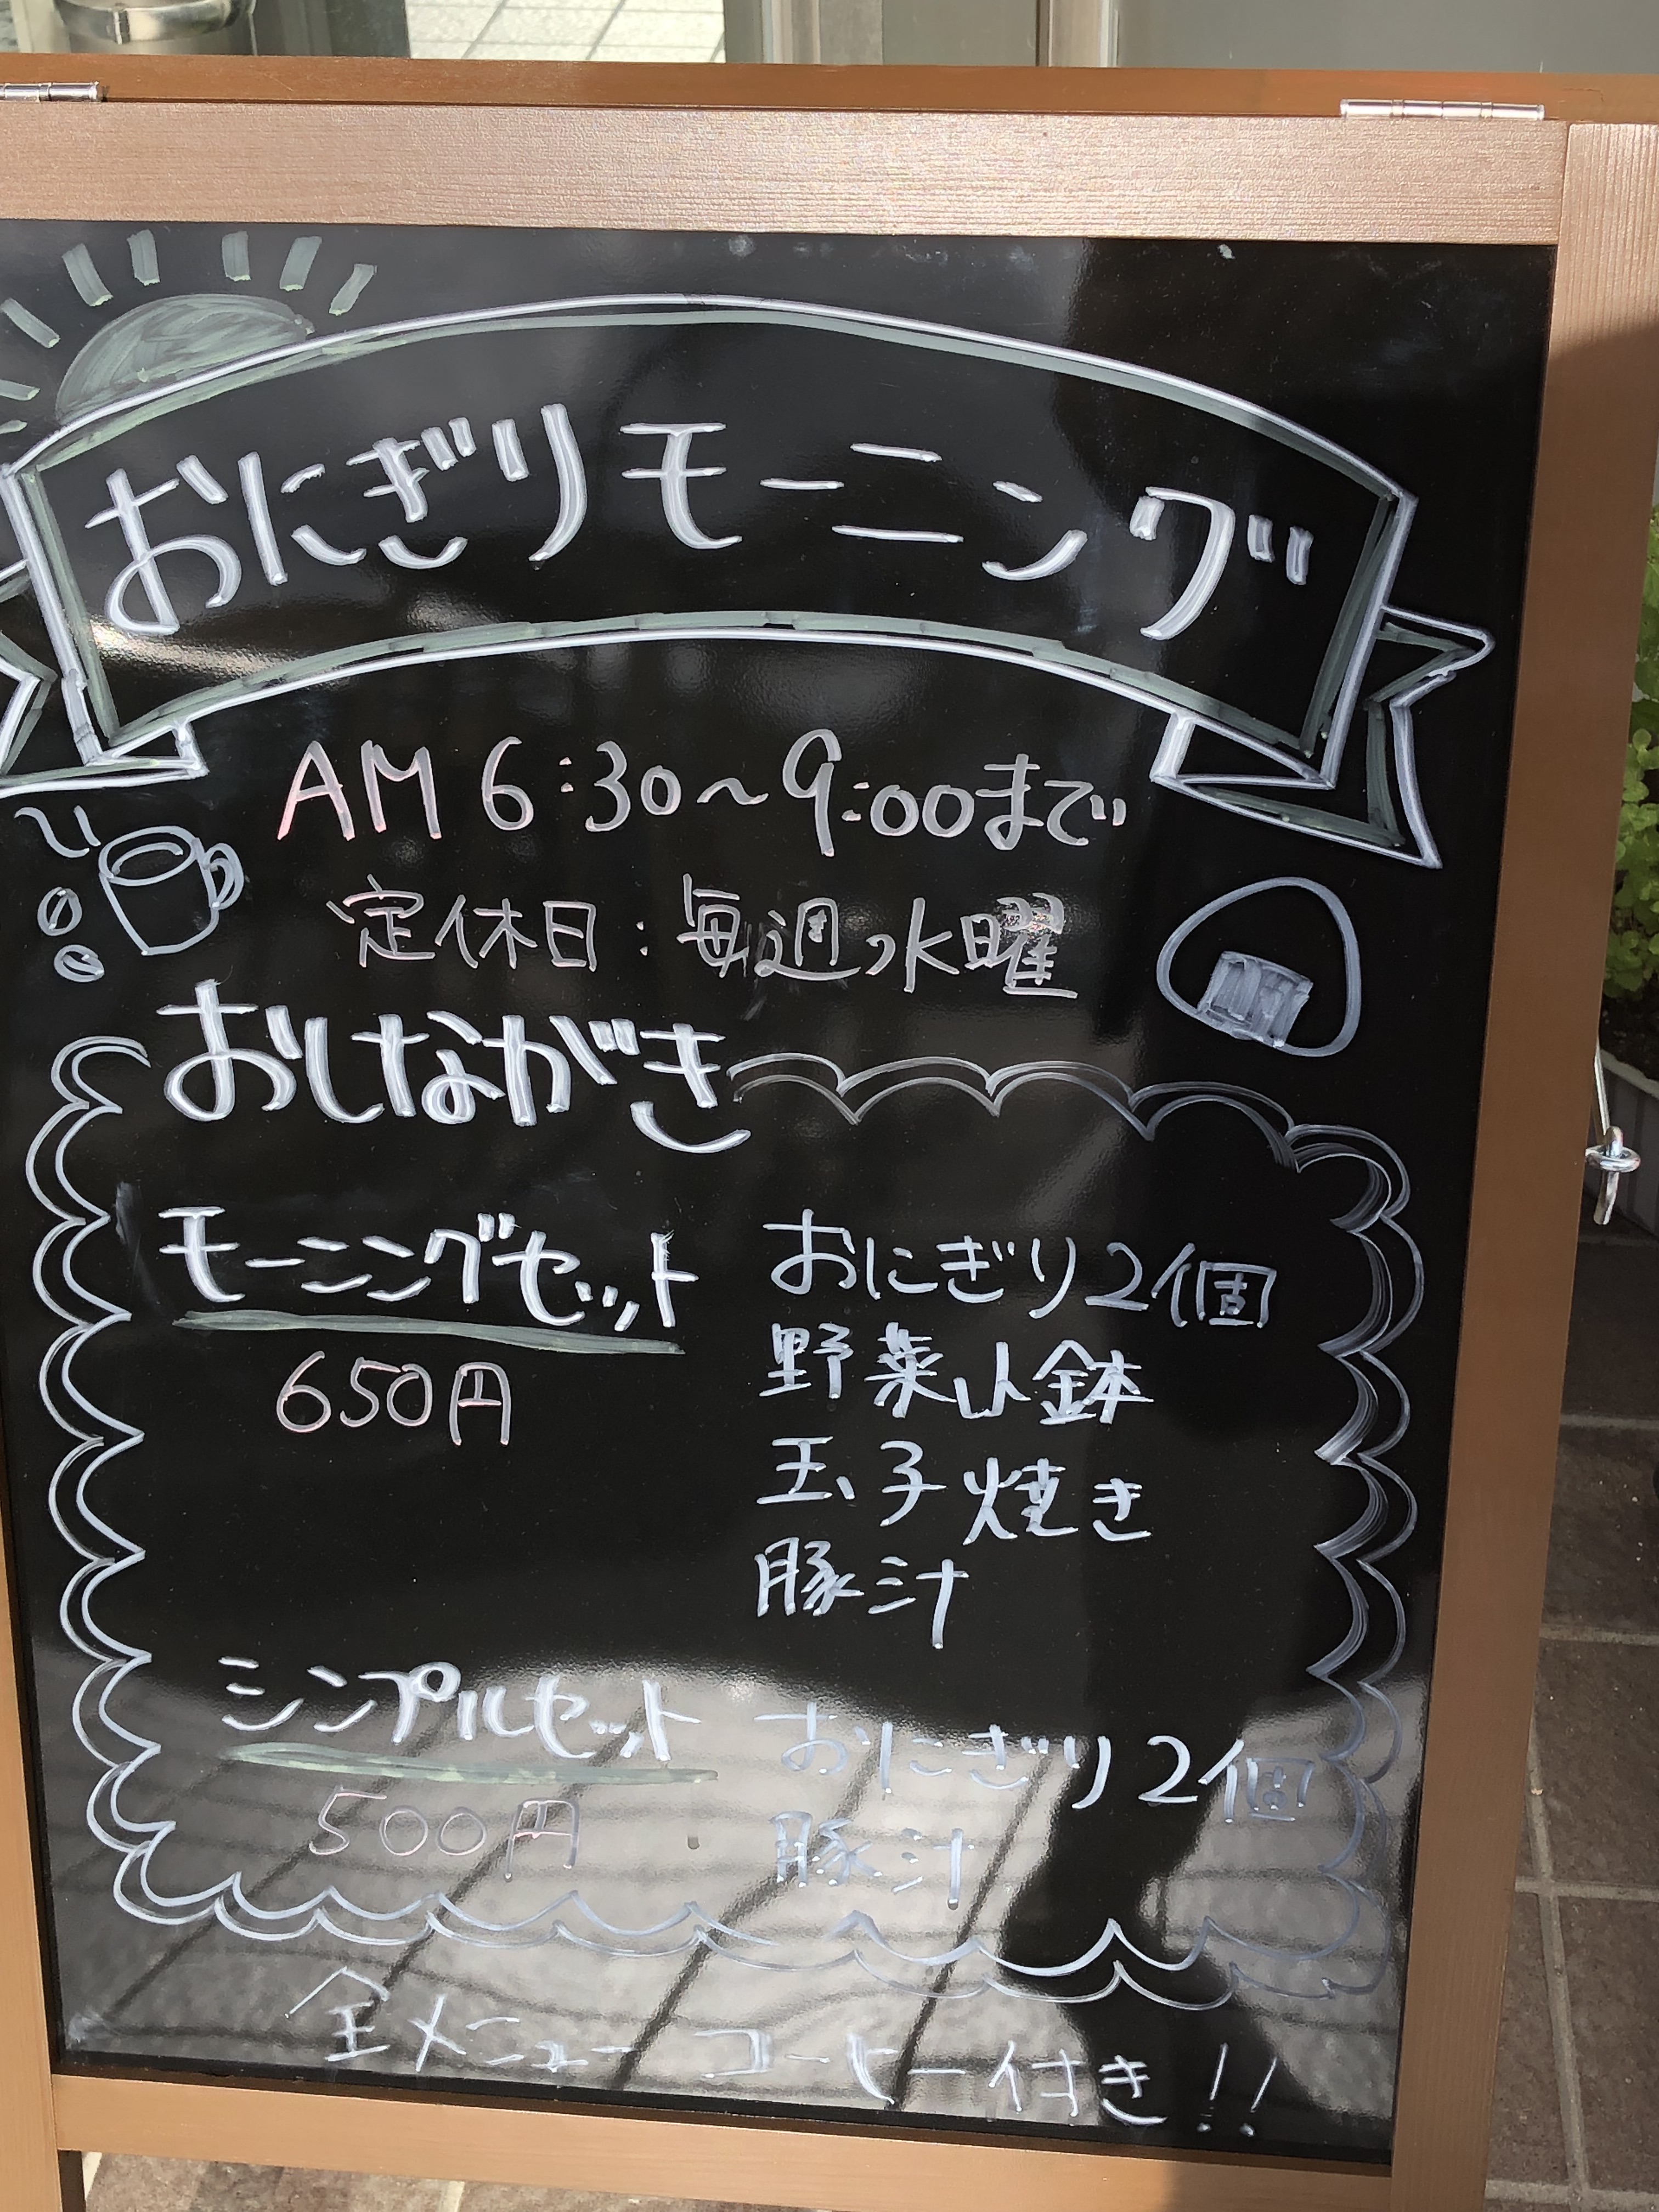 おにぎりモーニング
AM 6:30～9:00まで
定休日:毎週水曜
おしながき
モーニングセット
650円
おにぎり2個
野菜小鉢
玉子焼き
豚汁
シンプルセット
500円
おにぎり2個
豚汁
全メニュー コーヒー付き!!